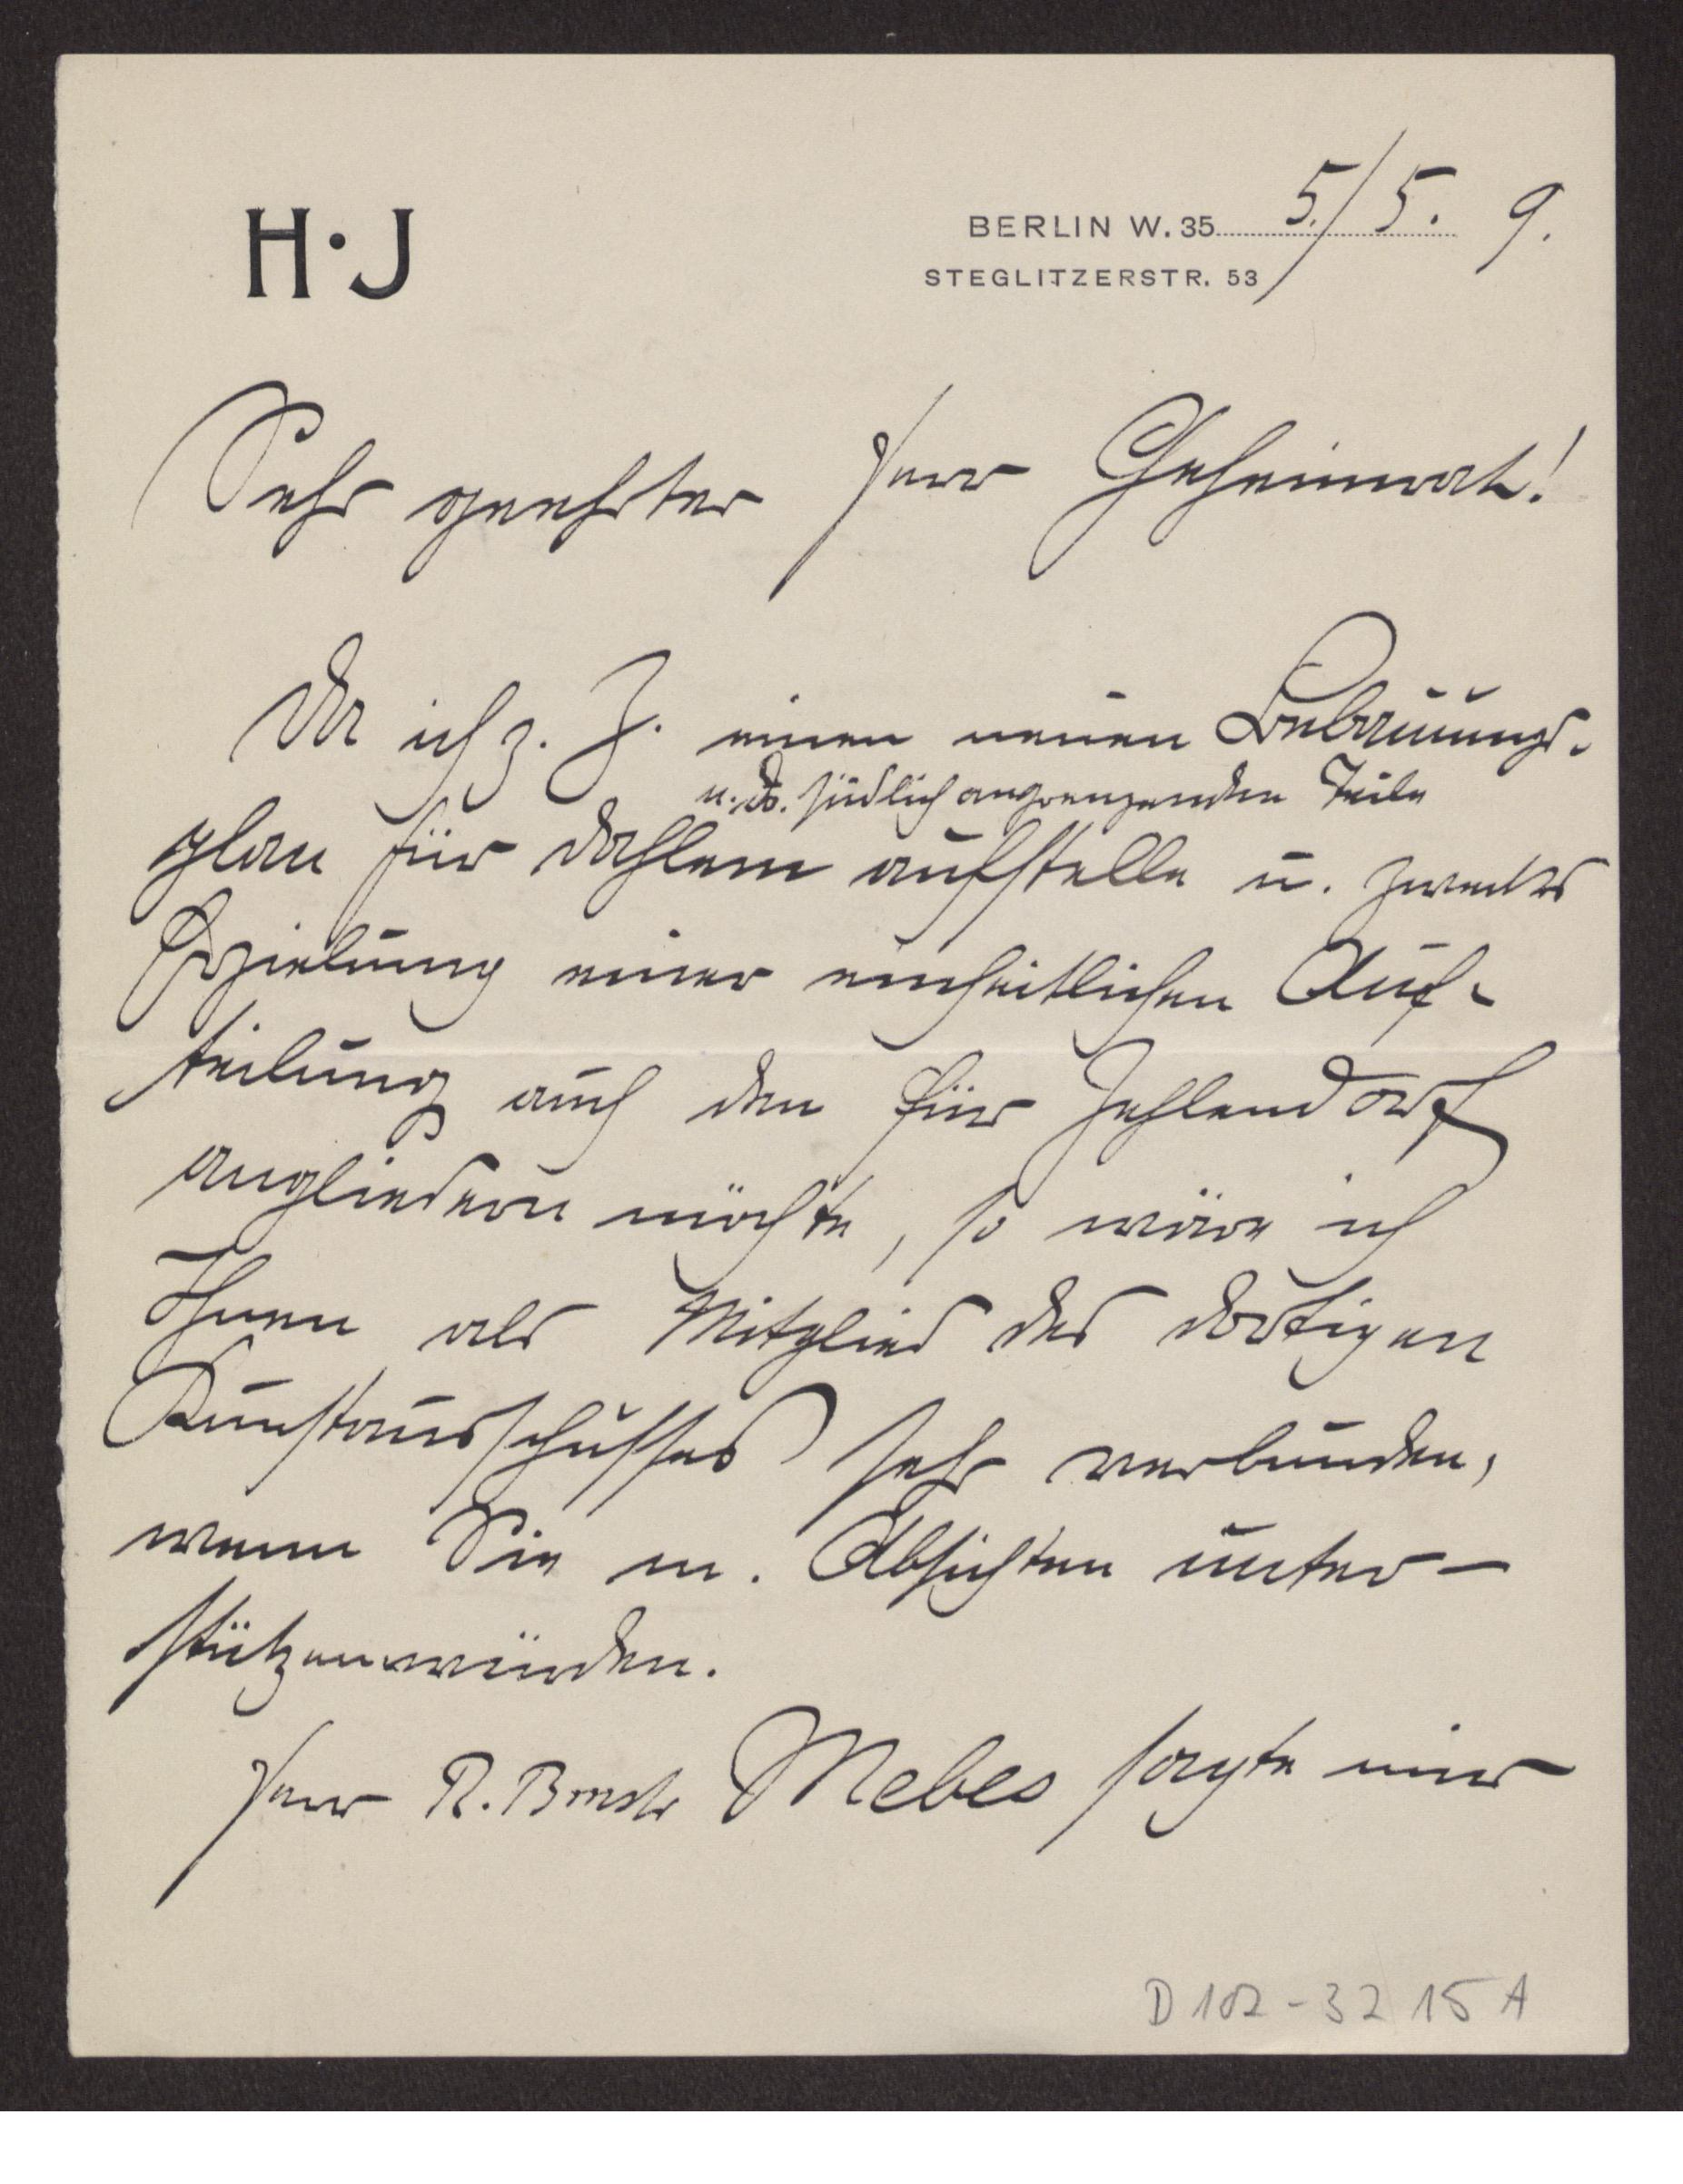 H·J
BERLIN W. 35 5./5. 9.
STEGLITZERSTR. 53
Sehr geehrter Herr Geheimrat!
Da ich z. Z. einen neuen Bebauungs-
u. d. südlich angrenzenden Teile
plan für Dahlem aufstelle u. zwecks
Erzielung einer einheitlichen Auf-
teilung auch den für Zehlendorf
angliedern möchte, so wäre ich
Ihnen als Mitglied des dortigen
Kunstausschusses sehr verbunden,
wenn Sie m. Absichten unter-
stützen würden.
Herr R. Bmstr Mebes sagte mir
D 102-32 15 A